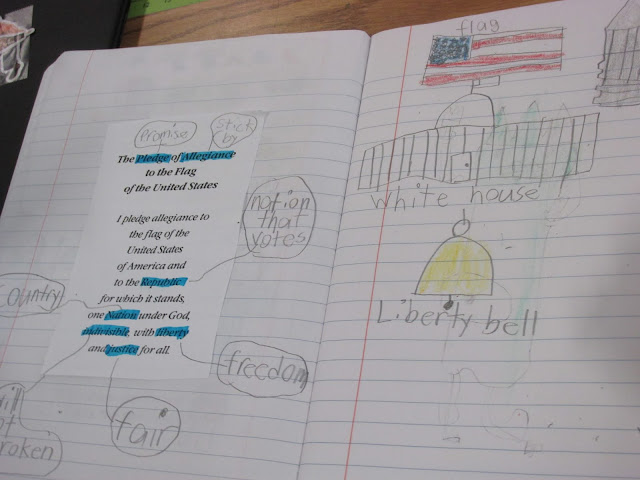 Promise
Stick
by
The Pledge of Allegiance
to the Flag
of the United States
I pledge allegiance to
the flag of the
United States
of America and
to the Republic
for which it stands,
one Nation under God,
indivisible, with liberty
and justice for all.
nation
that
votes
country
freedom
fair
flag
white house
Liberty bell